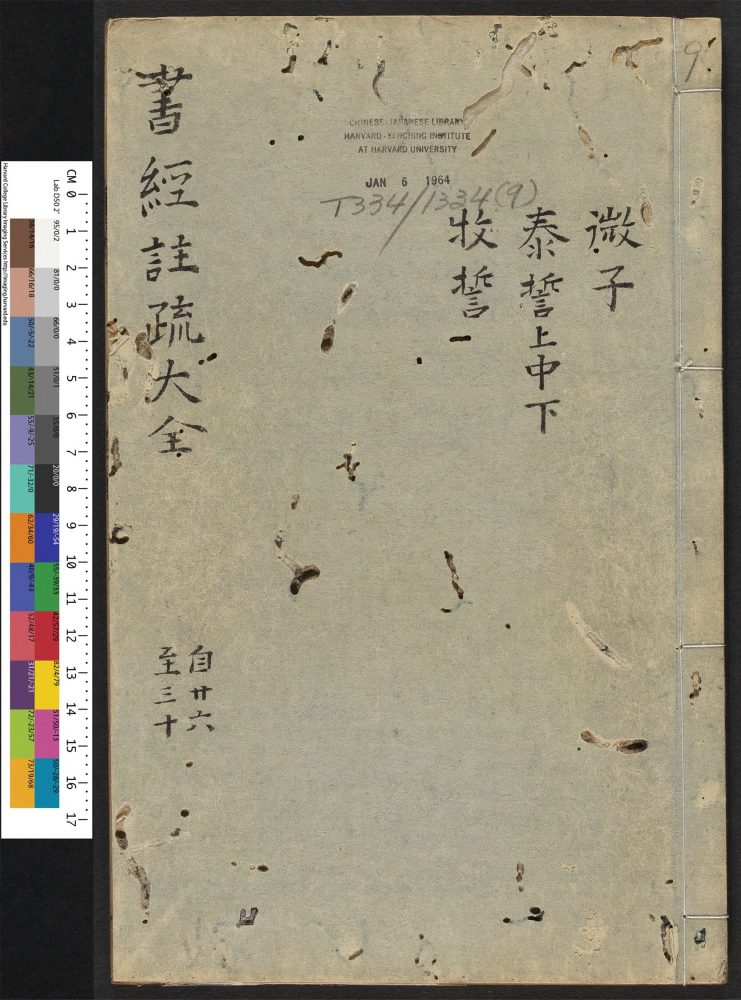 微子
泰誓上中下
牧誓
書經註疏大全
自廿六
至三十
9
CHINESE-JAPANESE LIBRARY
HARVARD-YENCHING INSTITUTE
AT HARVARD UNIVERSITY
JAN 6 1964
T334/1334(9)
CM 0 1 2 3 4 5 6 7 8 9 10 11 12 13 14 15 16 17
Harvard College Library Imaging Services